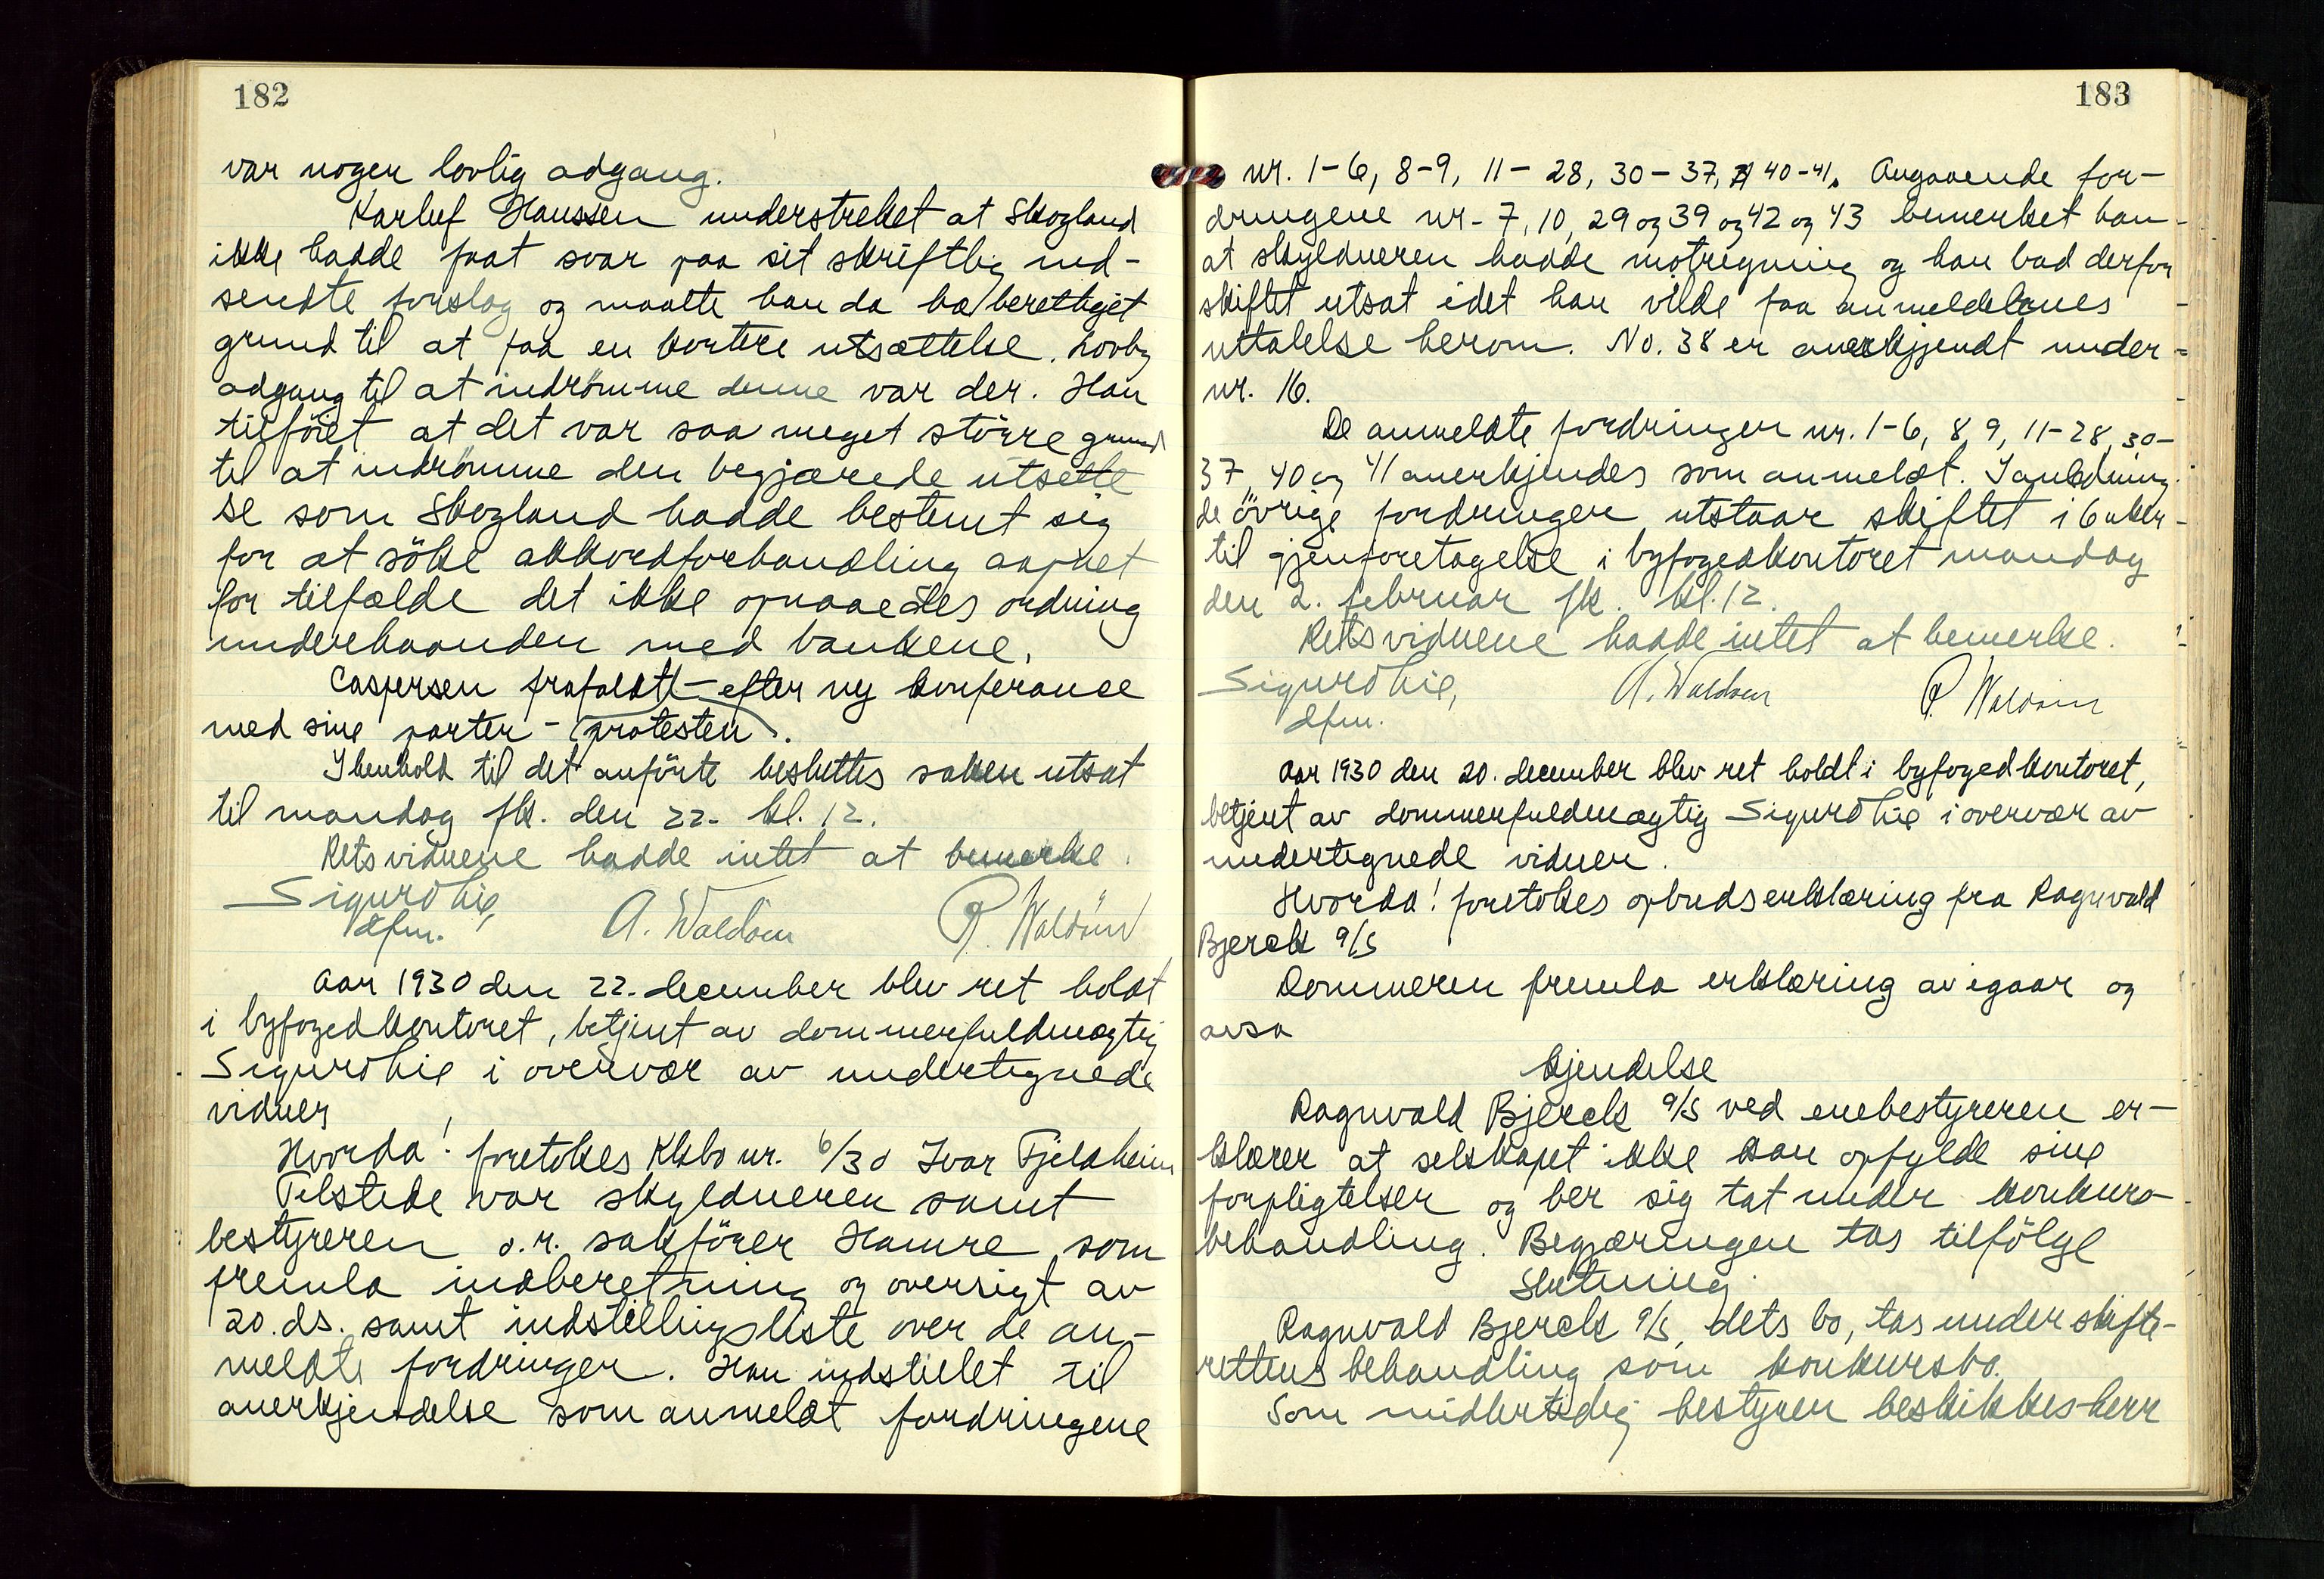 182
var nogen lovlig adgang.
Karluf Hanssen understreket at Skogland
ikke hadde faat svar paa sit skriftlig ind-
sendte forslag og maatte han da ha berettiget
grund til at faa en kortere utsættelse. Lovlig
adgang til at indrömme denne var der. Han
tilföiet at det var saa meget större grund
til at indrömme den begjærede utsettel
se som Skogland hadde bestemt sig
for at söke akkordforhandling aapnet
for tilfælde det ikke opnaaedes ordning
underhaanden med bankene.
Caspersen frafaldt - efter ny konferance
med sine parter - (protesten).
I henhold til det anförte besluttes saken utsat
til mandag fk. den 22. kl. 12.
Retsvidnene hadde intet at bemerke.
Sigurd Lie,
dfm.
A. Waldom
R. Waldom
Aar 1930 den 22. december blev ret holdt
i byfogedkontoret, betjent av dommerfuldmægtig
Sigurd Lie i overvær av undertegnede
vidner
Hvorda! foretokes Kkbo nr. 6/30 Ivar Fjeldheim
Tilstede var skyldneren samt
bestyreren o.r. sakförer Hamre, som
fremla indberetning og oversigt av
20. ds. samt indstillingsliste over de an-
meldte fordringer. Han indstillet til
anerkjendelse som anmeldt fordringene
183
nr. 1-6, 8-9, 11-28, 30-37, 40-41. Angaaende for-
dringene nr. 7, 10, 29 og 39 og 42 og 43 bemerket han
at skyldneren hadde motregning og han bad derfor
skiftet utsat idet han vilde faa anmeldelsenes
uttalelse herom. No. 38 er anerkjendt under
nr. 16.
De anmeldte fordringer nr. 1-6, 8, 9, 11-28, 30-
37, 40 og 41 anerkjendes som anmeldt. I anledning
de övrige fordringer utstaar skiftet i 6 uker
til gjenforetagelse i byfogedkontoret mandag
den 2. februar fk. kl. 12.
Retsvidnene hadde intet at bemerke.
Sigurd Lie,
dfm.
A. Waldom
R. Waldom
Aar 1930 den 20. december blev ret holdt i byfogedkontoret,
betjent av dommerfuldmægtig Sigurd Lie i overvær av
undertegnede vidner.
Hvorda! foretokes opbudserklæring fra Ragnvald
Bjerck A/S
Dommeren fremla erklæring av igaar og
avsa
kjendelse
Ragnvald Bjerck A/S ved enebestyreren er-
klærer at selskapet ikke kan opfylde sine
forpligtelser og ber sig tat under konkurs-
behandling. Begjæringen tas tilfölge
Slutning
Ragnvald Bjerck A/S, dets bo, tas under skifte-
rettens behandling som konkursbo.
Som midlertidig bestyrer beskikkes herr